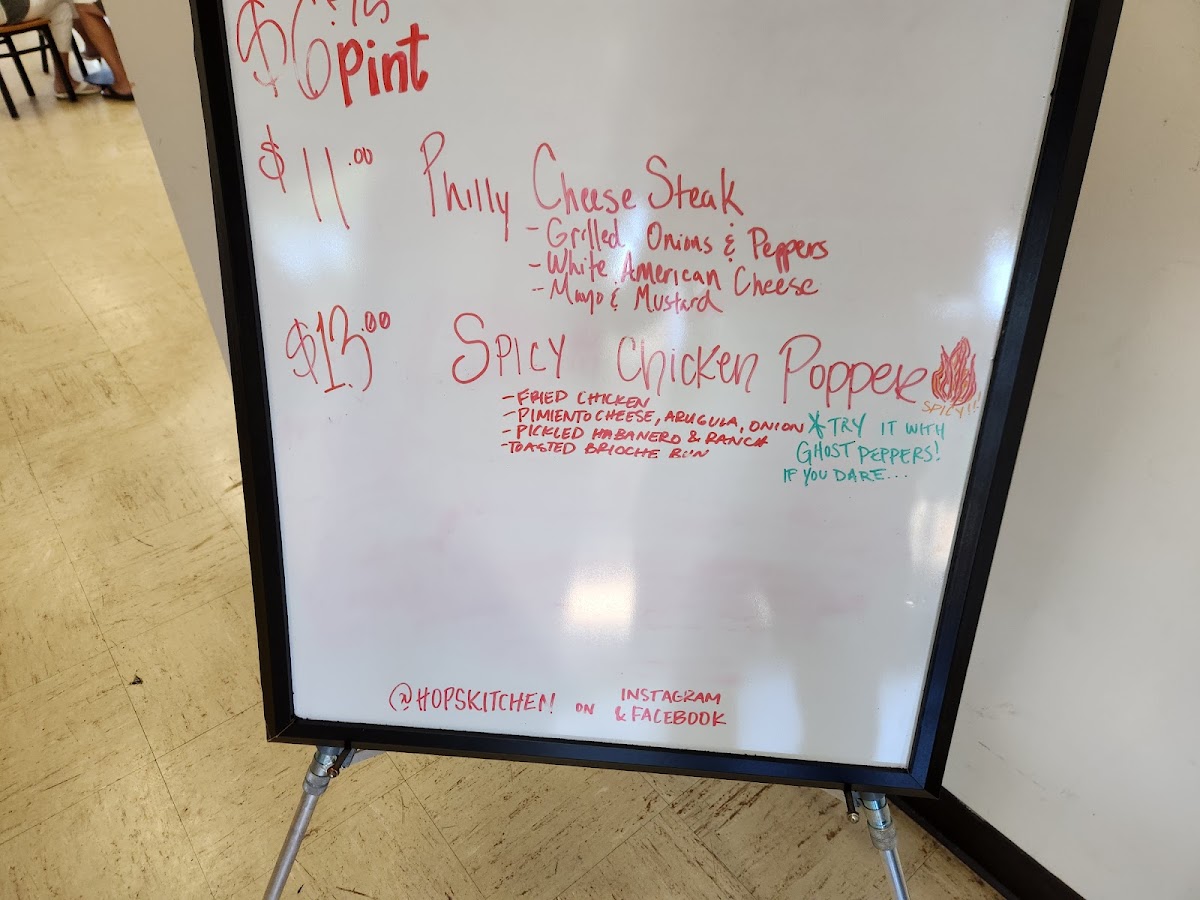 $6.75
pint
$11.00 Philly Cheese Steak
- Grilled Onions & Peppers
- White American Cheese
- Mayo & Mustard
$13.00 SPICY Chicken Popper
SPICY!!
- FRIED CHICKEN
- PIMIENTO CHEESE, ARUGULA, ONION
- PICKLED HABANERO & RANCH
- TOASTED BRIOCHE BUN
*TRY IT WITH
GHOST PEPPERS!
IF YOU DARE...
@HOPSKITCHEN! ON INSTAGRAM
& FACEBOOK